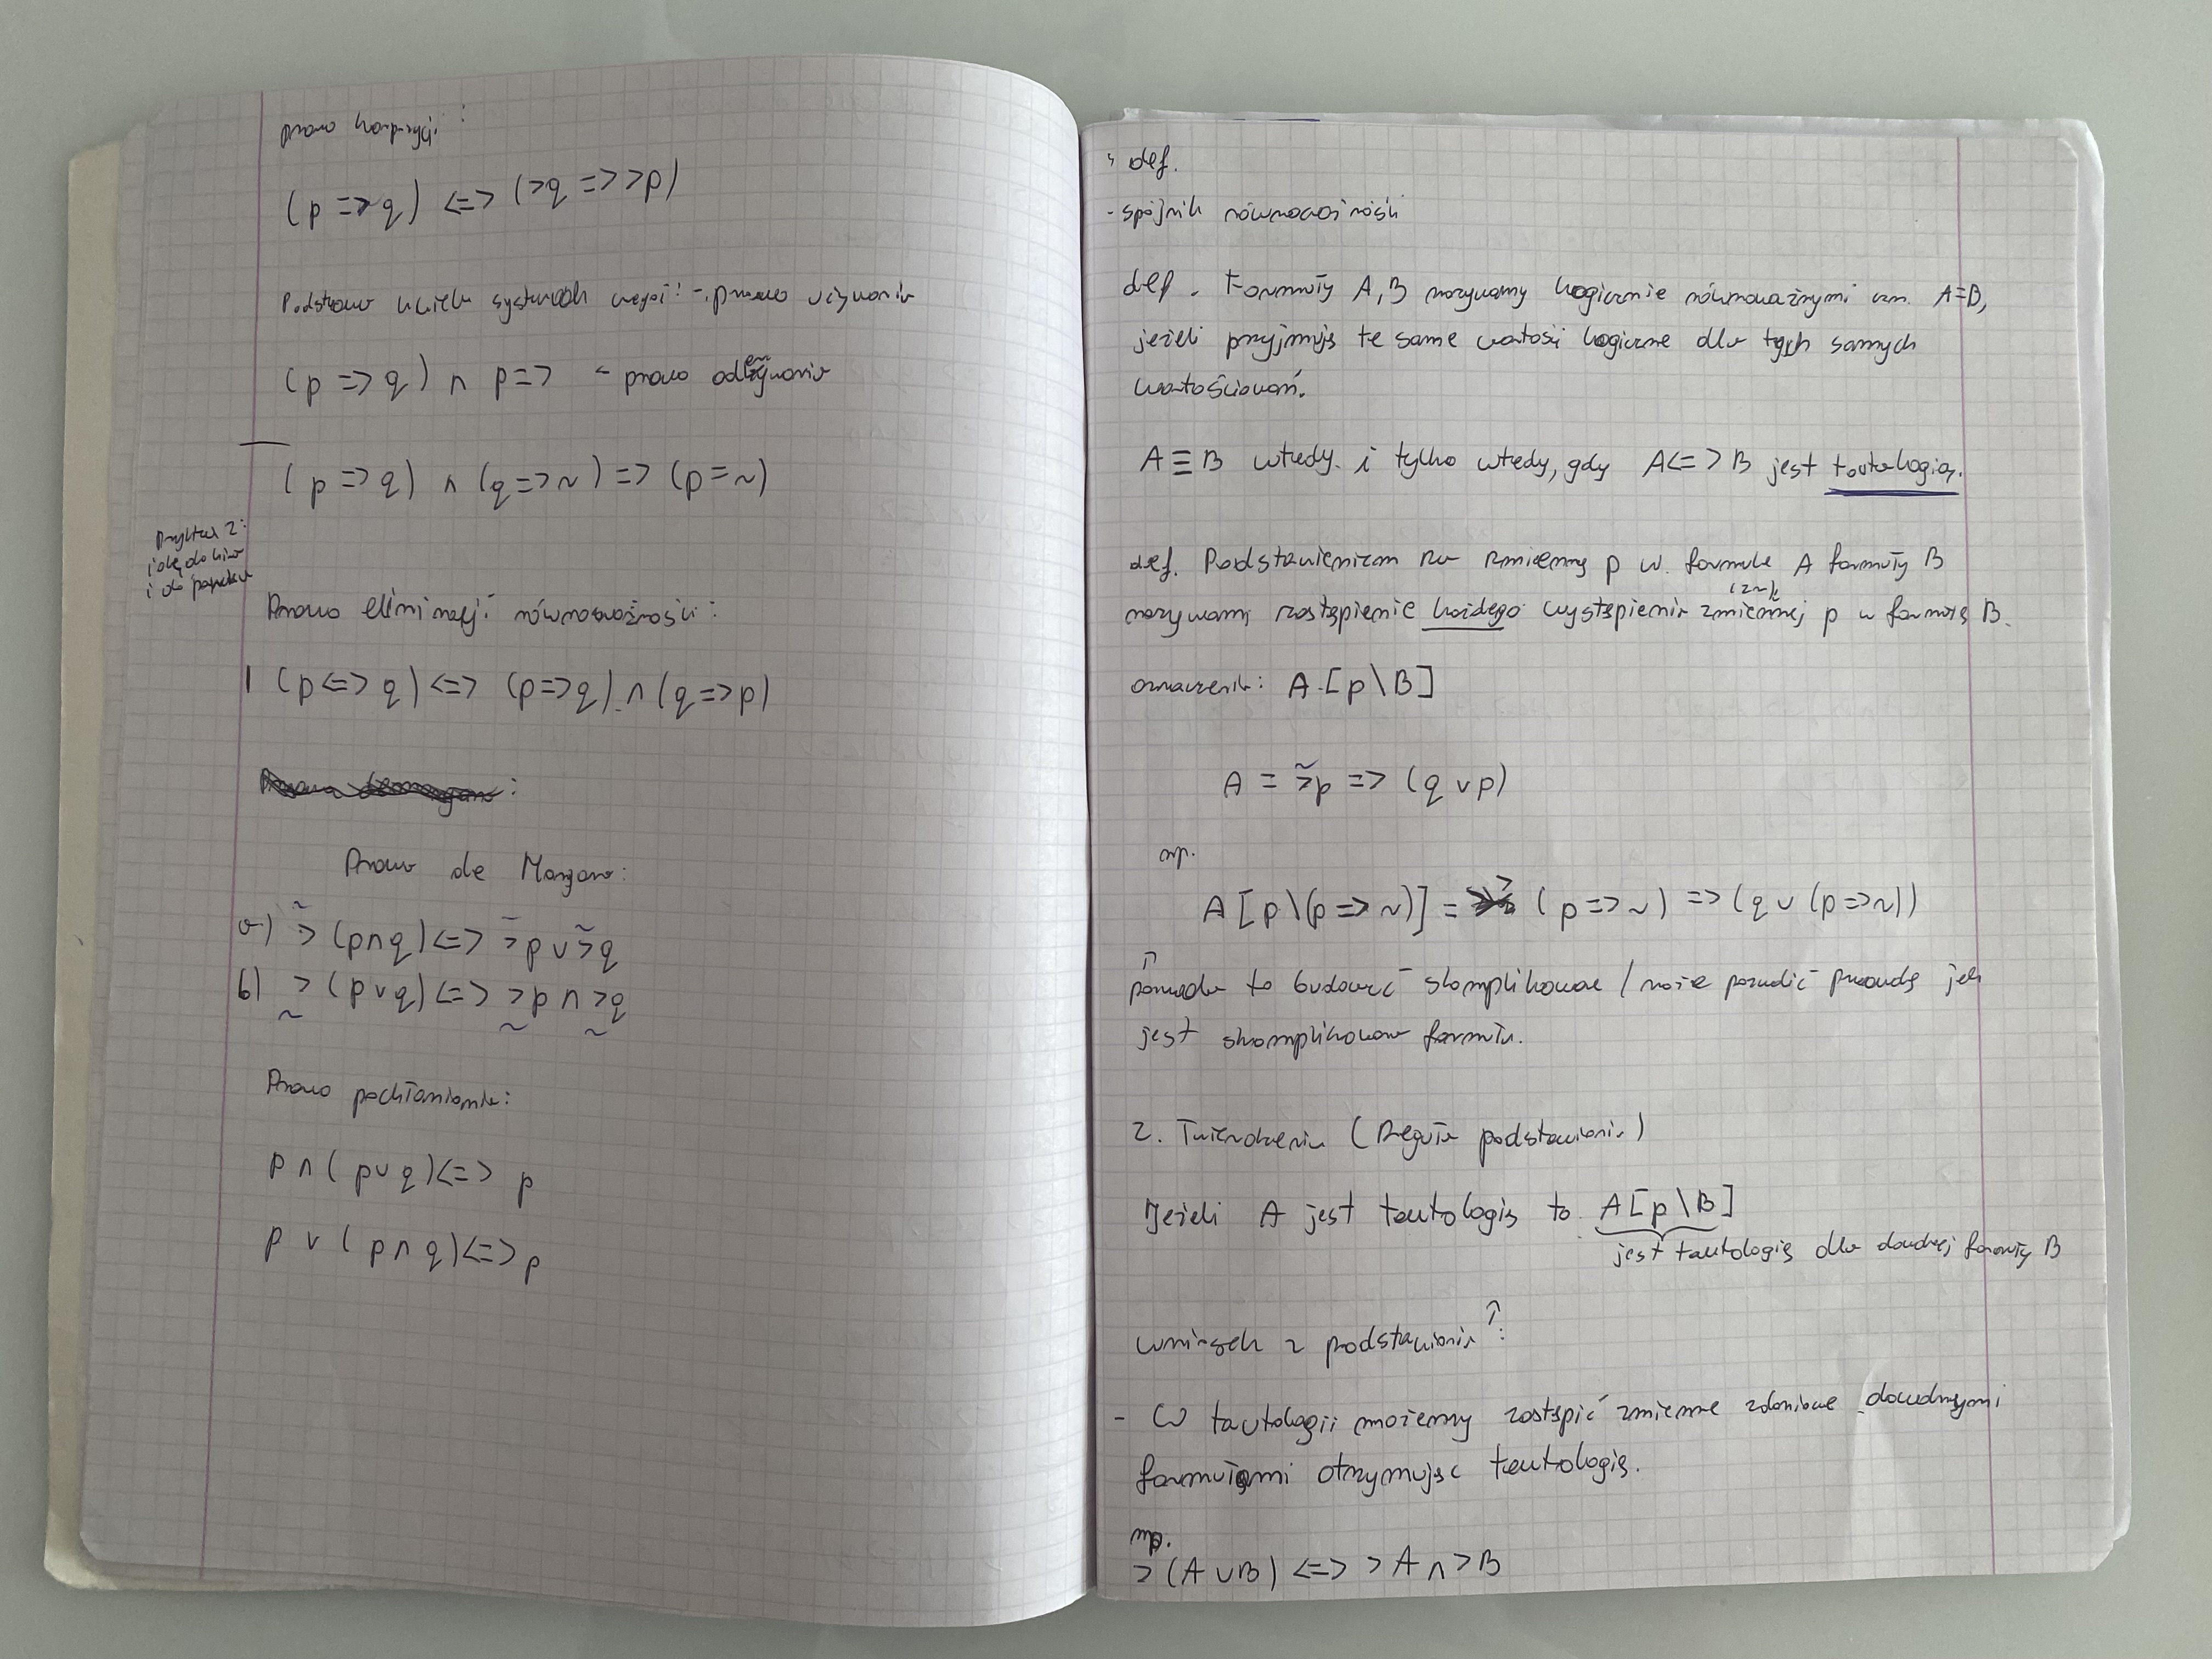 prawo kompozycji:
(p => q) <=> (>q => >p)
Podstawa wielu systemach : - prawo
(p => q) ∧ p => - prawo
(p => q) ∧ (q => ~) => (p = ~)
Przykład 2:
idę do kina
i do
Prawo eliminacji równoważności:
(p <=> q) <=> (p => q) ∧ (q => p)
Prawo de Morgana:
a) ~> (p ∧ q) <=> ~>p ∨ ~>q
b) > (p ∨ q) <=> >p ∧ >q
~ ~ ~
Prawo pochłaniania:
p ∧ (p ∨ q) <=> p
p ∨ (p ∧ q) <=> p
def.
- spójnik równoważności
def. Formuły A, B nazywamy logicznie równoważnymi ozn. A=B,
jeżeli przyjmują te same wartości logiczne dla tych samych
wartościowań.
A ≡ B wtedy i tylko wtedy, gdy A <=> B jest tautologią.
def. Podstawieniem za zmienną p w formule A formuły B
nazywamy zastąpienie każdego wystąpienia zmiennej p w formułę B.
oznaczenie: A [p \ B]
A = ~>p => (q ∨ p)
np.
A [p \ (p => ~)] = > (p => ~) => (q ∨ (p => ~))
pomaga to budować skomplikowane / może prawdę jak
jest skomplikowana formuła.
2. Twierdzenie (Reguła podstawiania)
Jeżeli A jest tautologią to A [p \ B]
jest tautologią dla dowolnej formuły B
wniosek z podstawiania:
- W tautologii możemy zastąpić zmienne zdaniowe dowolnymi
formułami otrzymując tautologię.
np.
> (A ∨ B) <=> > A ∧ > B